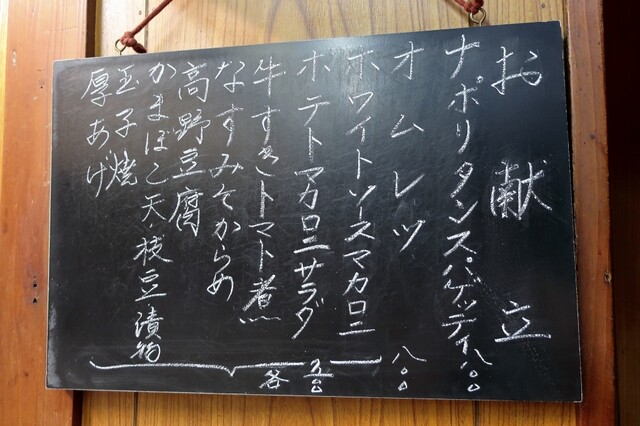 お献立
ナポリタンスパゲッティ 八〇〇
オムレツ 八〇〇
ホワイトソースマカロニ
ポテトマカロニサラダ
牛すきトマト煮
なすみそからめ
高野豆腐
かまぼこ天・枝豆漬物
玉子焼
厚あげ
各